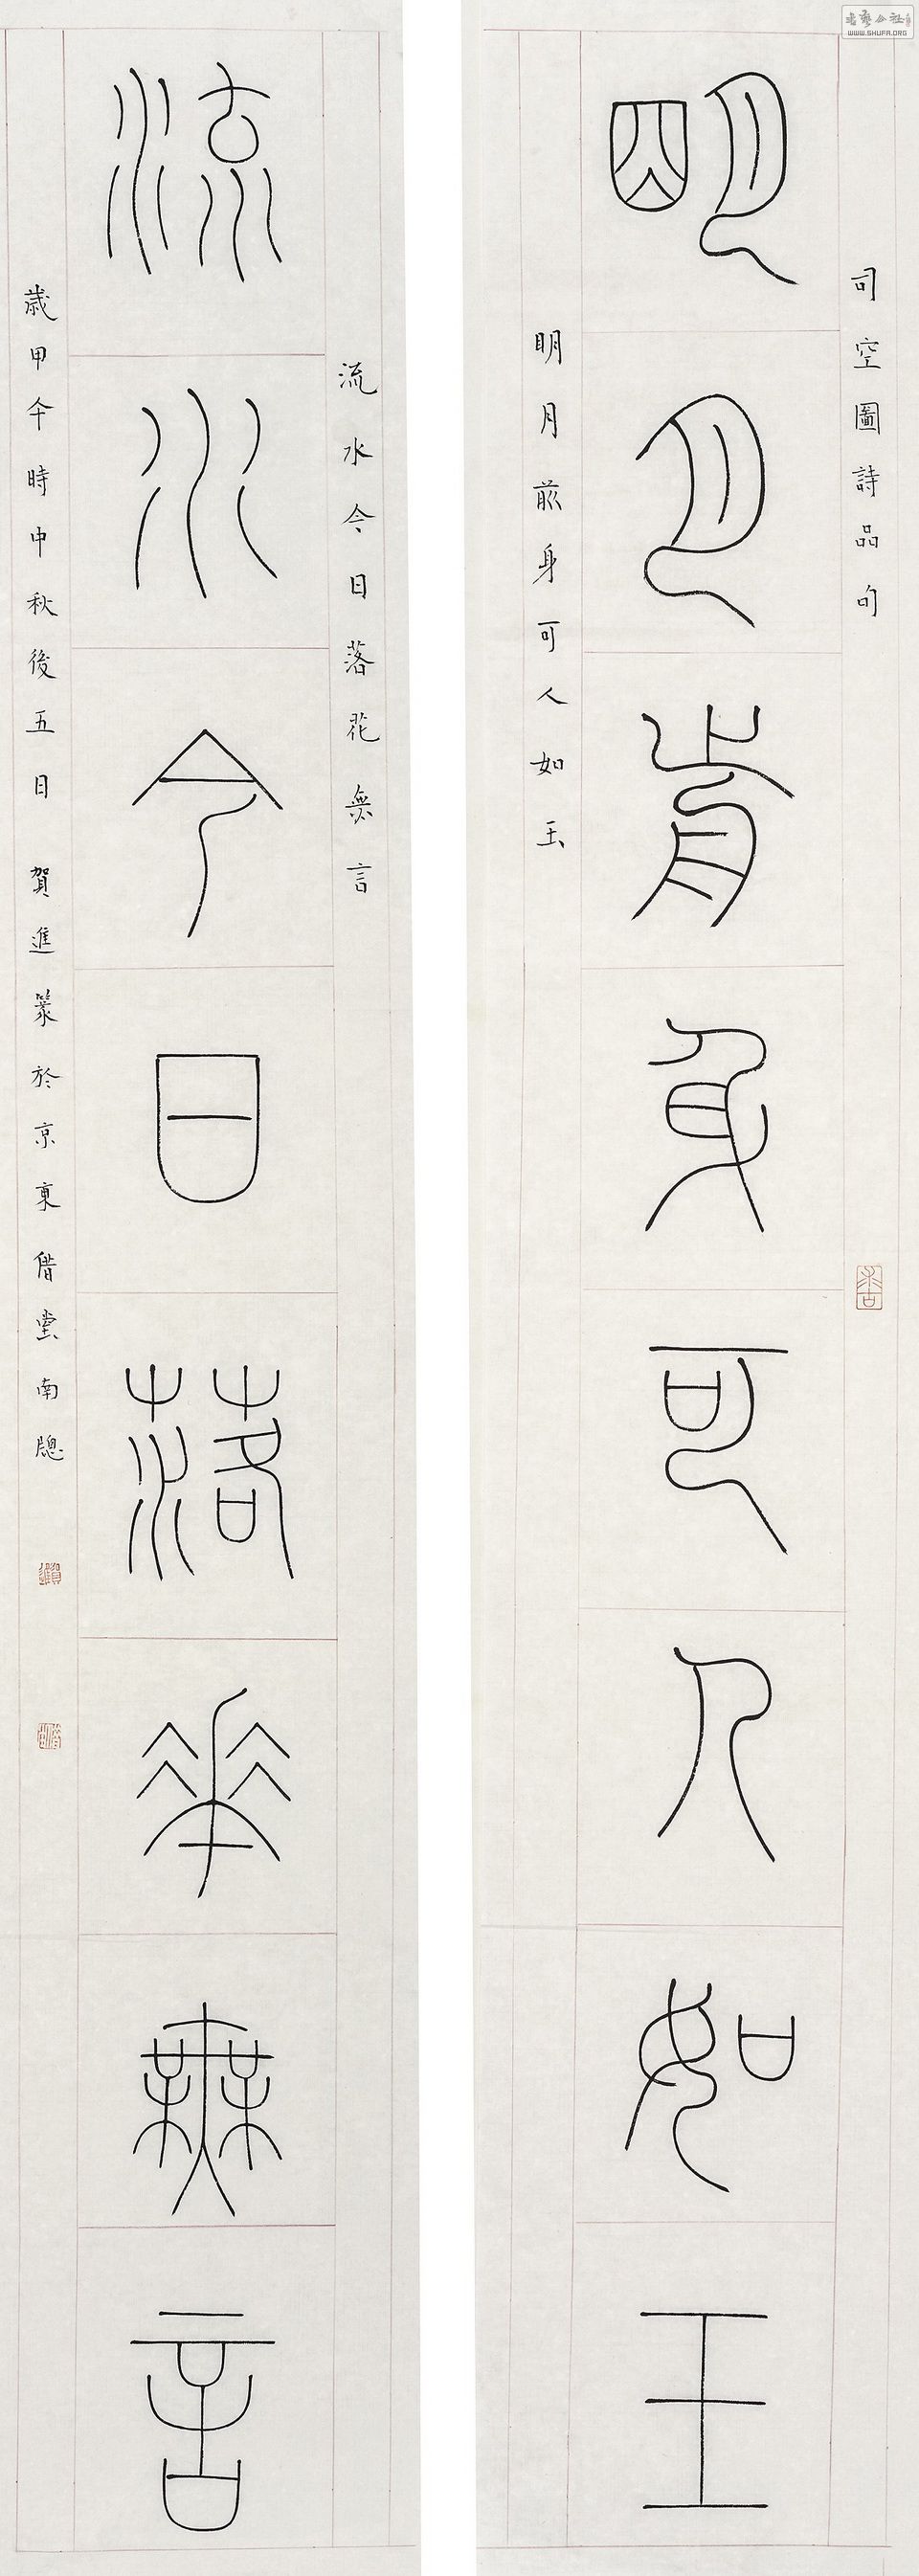 司空圖詩品句
明月前身可人如玉
明月前身可人如玉
流水今日落花無言
流水今日落華無言
歲甲午時中秋後五日 賀進篆於京東借堂南牕
WWW.SHUFA.ORG